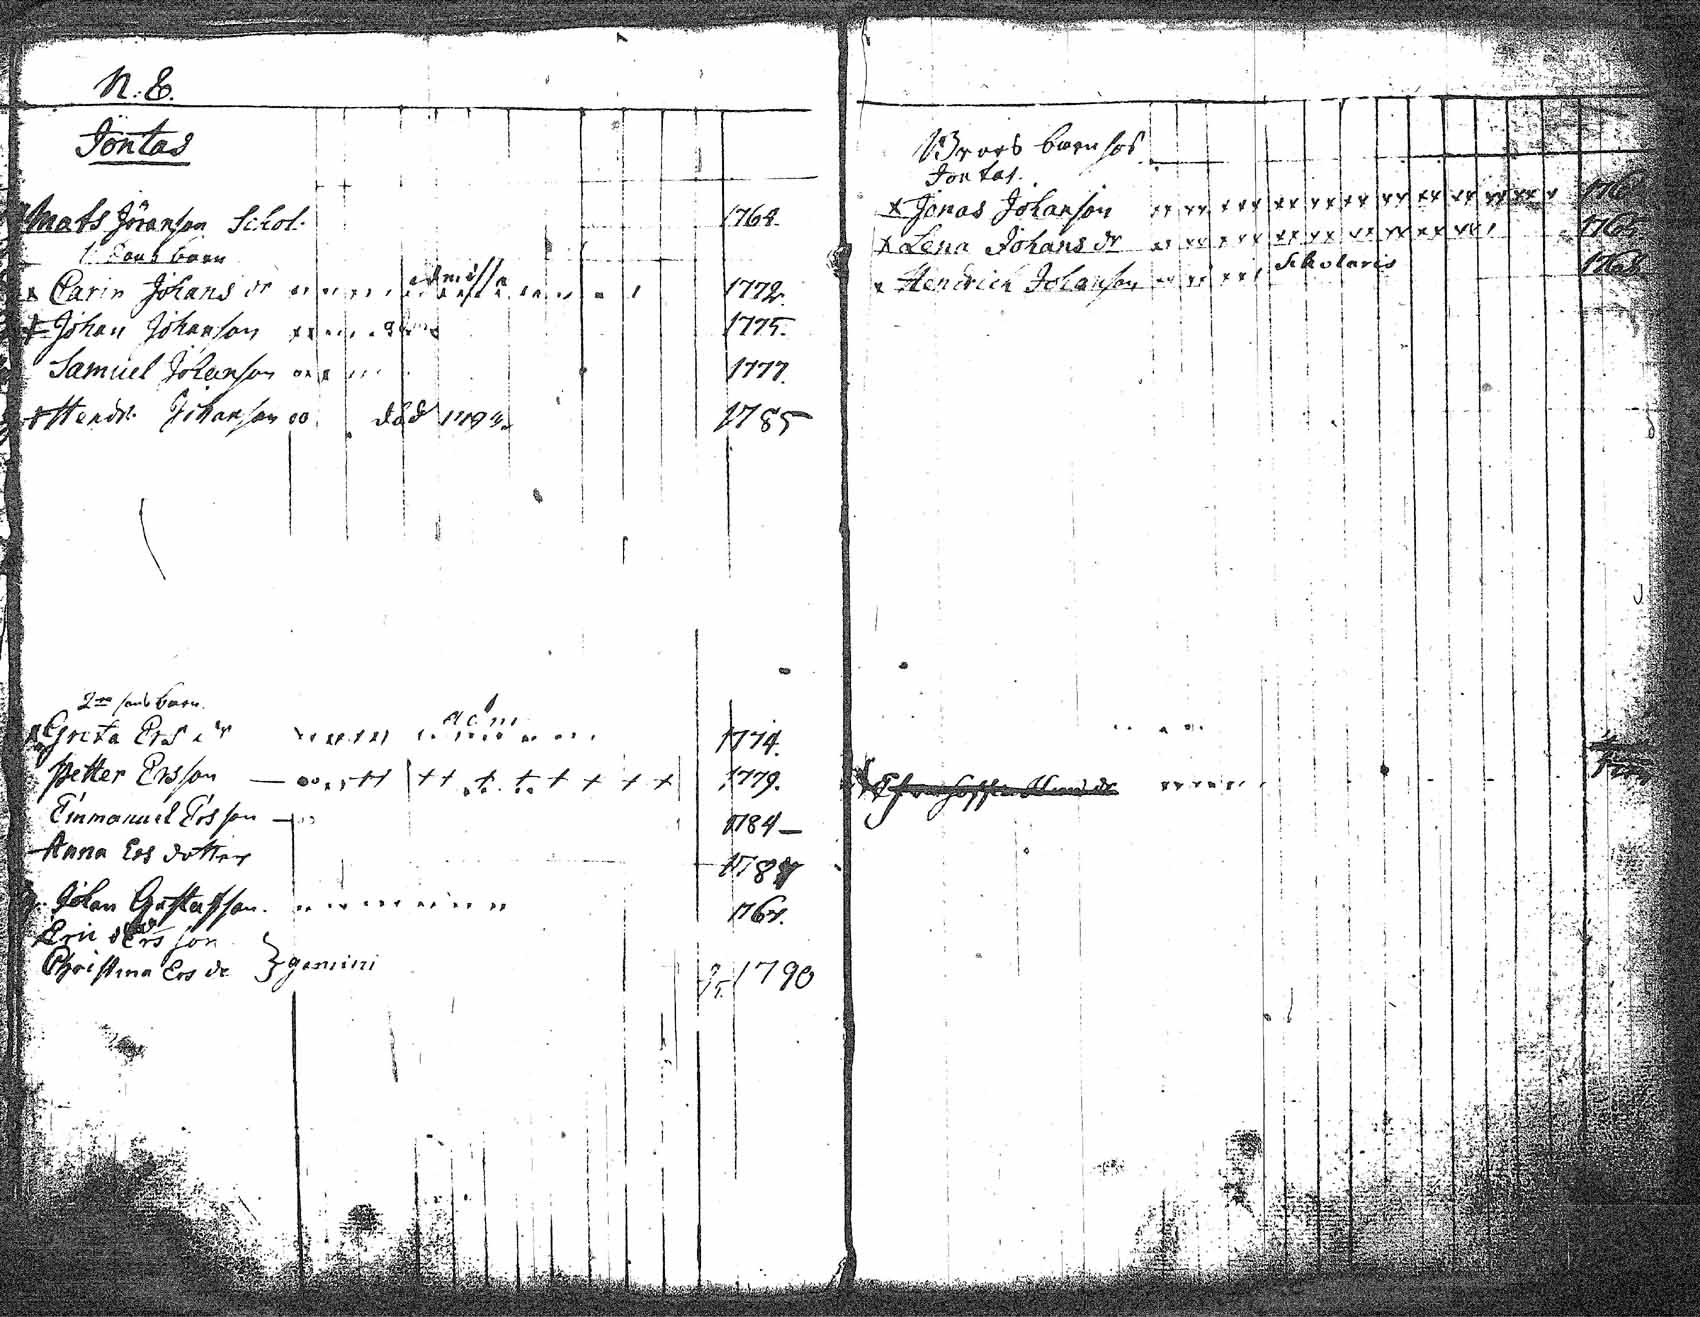 N. E.
Jontas
Mats Jöranson Schol. 1768.
1. sons barn
Carin Johans dr admissa 1772.
Johan Johanson 1775.
Samuel Johanson 1777.
Hendr. Johanson död 1785
2 sons barn
Greta Ers dr adm 1774.
Petter Ersson 1779.
Emmanuel Ersson 1784
Anna Ers dotter 1787
Johan Gustafson. 1767.
Eric Ersson
Christina Ers dr } gemini 1790
Brors barn hos
Jontas.
Jonas Johanson
Lena Johans dr
Hendrich Johanson Scholaris